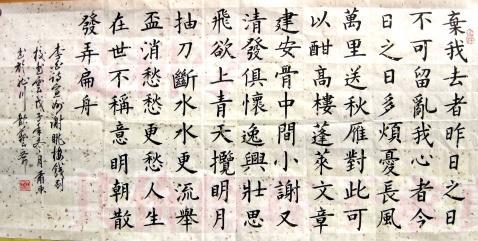 棄我去者昨日之日
不可留亂我心者今
日之日多煩憂長風
萬里送秋雁對此可
以酣高樓蓬萊文章
建安骨中間小謝又
清發俱懷逸興壯思
飛欲上青天攬明月
抽刀斷水水更流舉
盃消愁愁更愁人生
在世不稱意明朝散
發弄扁舟
李白詩宣州謝朓樓餞別
校書雲戊子年
書於